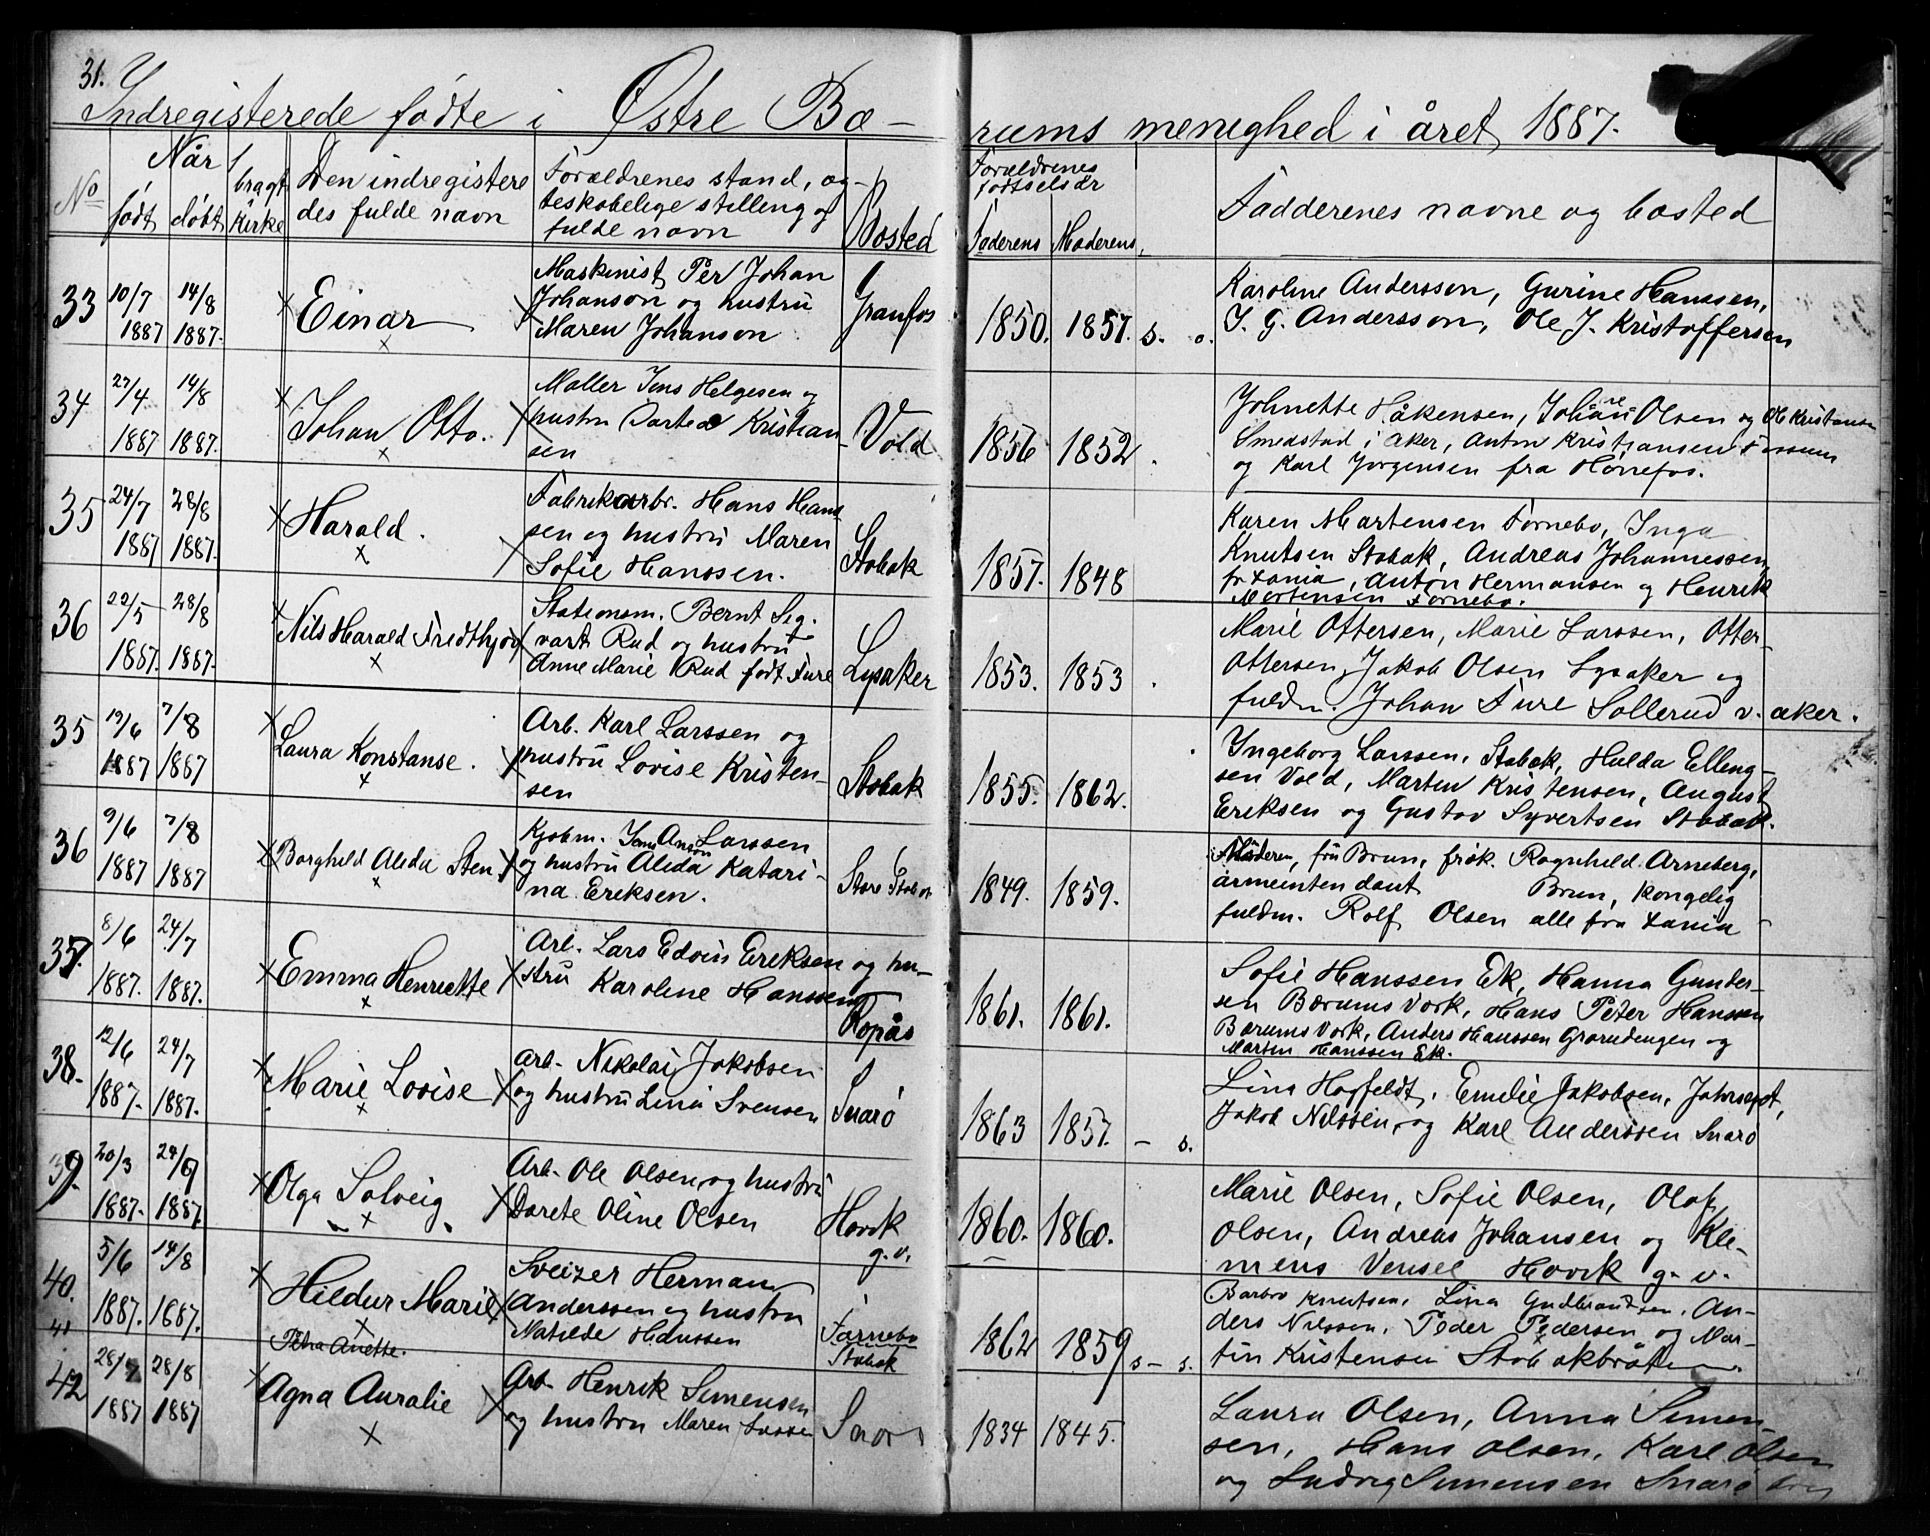 31.
Indregisterede fødte i Østre Bæ-
rums menighed i året 1887.
No
Når
født
døbt
bragt Kirke
Den indregistere
des fulde navn
Forældrenes stand, æg-
teskabelige stilling og
fulde navn
Bosted
Forældrenes
fødselsår
Faderens
Moderens
Fadderenes navne og bosted
33 10/7 1887 14/8 1887.
Einar
Maskinist Per Johan
Johanson og hustru
Maren Johanson
Granfos
1850. 1857. s. o.
Karoline Andersson, Gurine Hanssen,
J. G. Andersson, Ole J. Kristoffersen
34 27/4 1887 14/8 1887.
Johan Otto.
Møller Jens Helgesen og
hustru Dortea Kristian-
sen
Vold
1856 1852
Johnette Håkensen, Johane Olsen og Ole Kristansen
Smedstad i aker, Anton Kristiansen Fossum
og Karl Jørgensen fra Hønefos.
35 24/7 1887 28/8 1887.
Harald.
Fabrikarbr. Hans Hans
sen og hustru Maren
Sofie Hanssen.
Stabæk
1857. 1848
Karen Martensen Fornebo, Inga
Knutsen Stabæk, Andreas Johannessen
fr Xania, Anton Hermansen og Henrik
Mortensen Fornebo.
36 22/5 1887. 28/8 1887.
Nils Harald Fredthjov
Stationsm. Bernt Sig-
vart Rud og hustru
Anne Marie Rud født Fure
Lysaker
1853. 1853
Marie Ottersen, Marie Larssen, Otter-
Ottersen, Jakob Olsen Lysaker og
fuldm. Johan Fure Sollerud v. aker.
35 19/6 1887 7/8 1887
Laura Konstanse.
Arb. Karl Larssen og
hustru Lovise Kristen-
sen
Stabæk
1855. 1862.
Ingeborg Larssen, Stabæk, Hulda Elleng-
sen Vold, Martin Kristensen, August
Eriksen og Gustav Syvertsen Stabæk.
36 9/6 1887 7/8 1887
Borghild Alida Sten
Kjøbm. Jens Anton Larssen
og hustru Alida Katari-
na Eriksen.
Store Stabæk
1849. 1859.
Moderen, fru Brun, frøk. Ragnhild Arneberg,
armeintendant Brun, kongelig
fuldm. Rolf Olsen alle fra Xania
37. 8/6 1887. 24/7 1887.
Emma Henriette
Arb. Lars Edvin Eriksen og hu-
stru Karoline Hanssen
Ropås
1861. 1861.
Sofie Hanssen Ek, Hanna Gunder-
sen Bærums Værk, Hans Peter Hanssen
Bærums Værk, Anders Hanssen Grorudengen og
Martin Hanssen Ek.
38. 12/6 1887. 24/7 1887.
Marie Lovise
Arb. Nikolai Jakobsen
og hustru Lina Svensen
Snarø
1863 1857. - s.
Lina Hogfeldt, Emilie Jakobsen,
Jakob Nilssen, og Karl Anderssen Snarø
39. 20/3 1887. 24/6 1887
Olga Solveig
Arb. Ole Olsen og hustru
Dorete Oline Olsen
Høvik
g.v.
1860. 1860.
Marie Olsen, Sofie Olsen, Olaf
Olsen, Andreas Johansen og Kle-
mens Vensel Høvik g. v.
40. 5/6 1887. 14/8 1887.
Hildur Marie
Sveizer Herman
Anderssen og hustru
Matilde Hanssen
Fornebo
1862 1859 s - s.
Barbro Knutsen, Lina Gudbrandsen, An-
ders Nilssen, Peder Pedersen og Mar-
tin Kristensen Stabækbråten
41
Petra Anette.
Stabæk
42 28/7 1887 28/8 1887
Agna Auralie
Arb. Henrik Simensen
og hustru Maren
Snarø
1834 1845.
Laura Olsen, Anna Simen
sen, Hans Olsen, Karl Olsen
og Ludvig Simensen Snarø